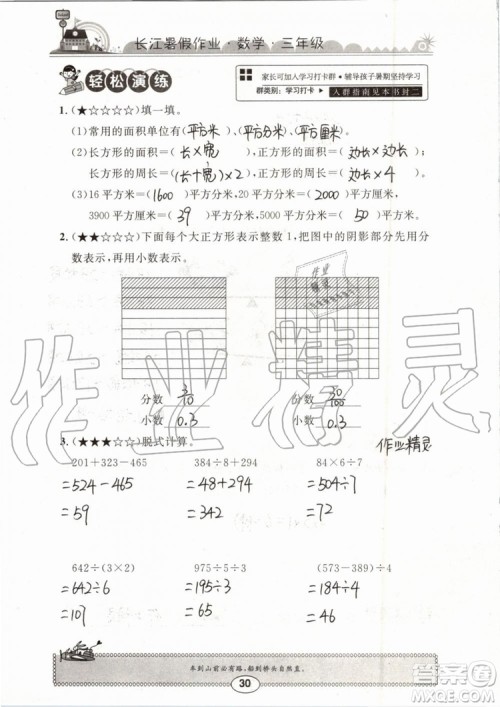 长江暑假作业·数学·三年级
轻松演练
家长可加入学习打卡群·辅导孩子暑期坚持学习
群类别：学习打卡 入群指南见本书封二
1.(★☆☆☆☆)填一填。
(1)常用的面积单位有(平方米)、(平方分米)、(平方厘米)。
(2)长方形的面积＝(长×宽),正方形的面积＝(边长×边长)，
长方形的周长＝(长+宽)×2,正方形的周长＝(边长×4)。
(3)16平方米＝(1600)平方分米,20平方分米＝(2000)平方厘米,
3900平方厘米＝(39)平方分米,5000平方分米＝(50)平方米。
2.(★★☆☆☆)下面每个大正方形表示整数1,把图中的阴影部分先用分
数表示,再用小数表示。
作业
精灵
分数 3/10 分数 30/100
小数 0.3 小数 0.3
3.(★★★☆☆)脱式计算。 作业精灵
201+323-465 384÷8+294 84×6÷7
=524-465 =48+294 =504÷7
=59 =342 =72
642÷(3×2) 975÷5÷3 (573-389)÷4
=642÷6 =195÷3 =184÷4
=107 =65 =46
车到山前必有路,船到桥头自然直。
30
作业精灵